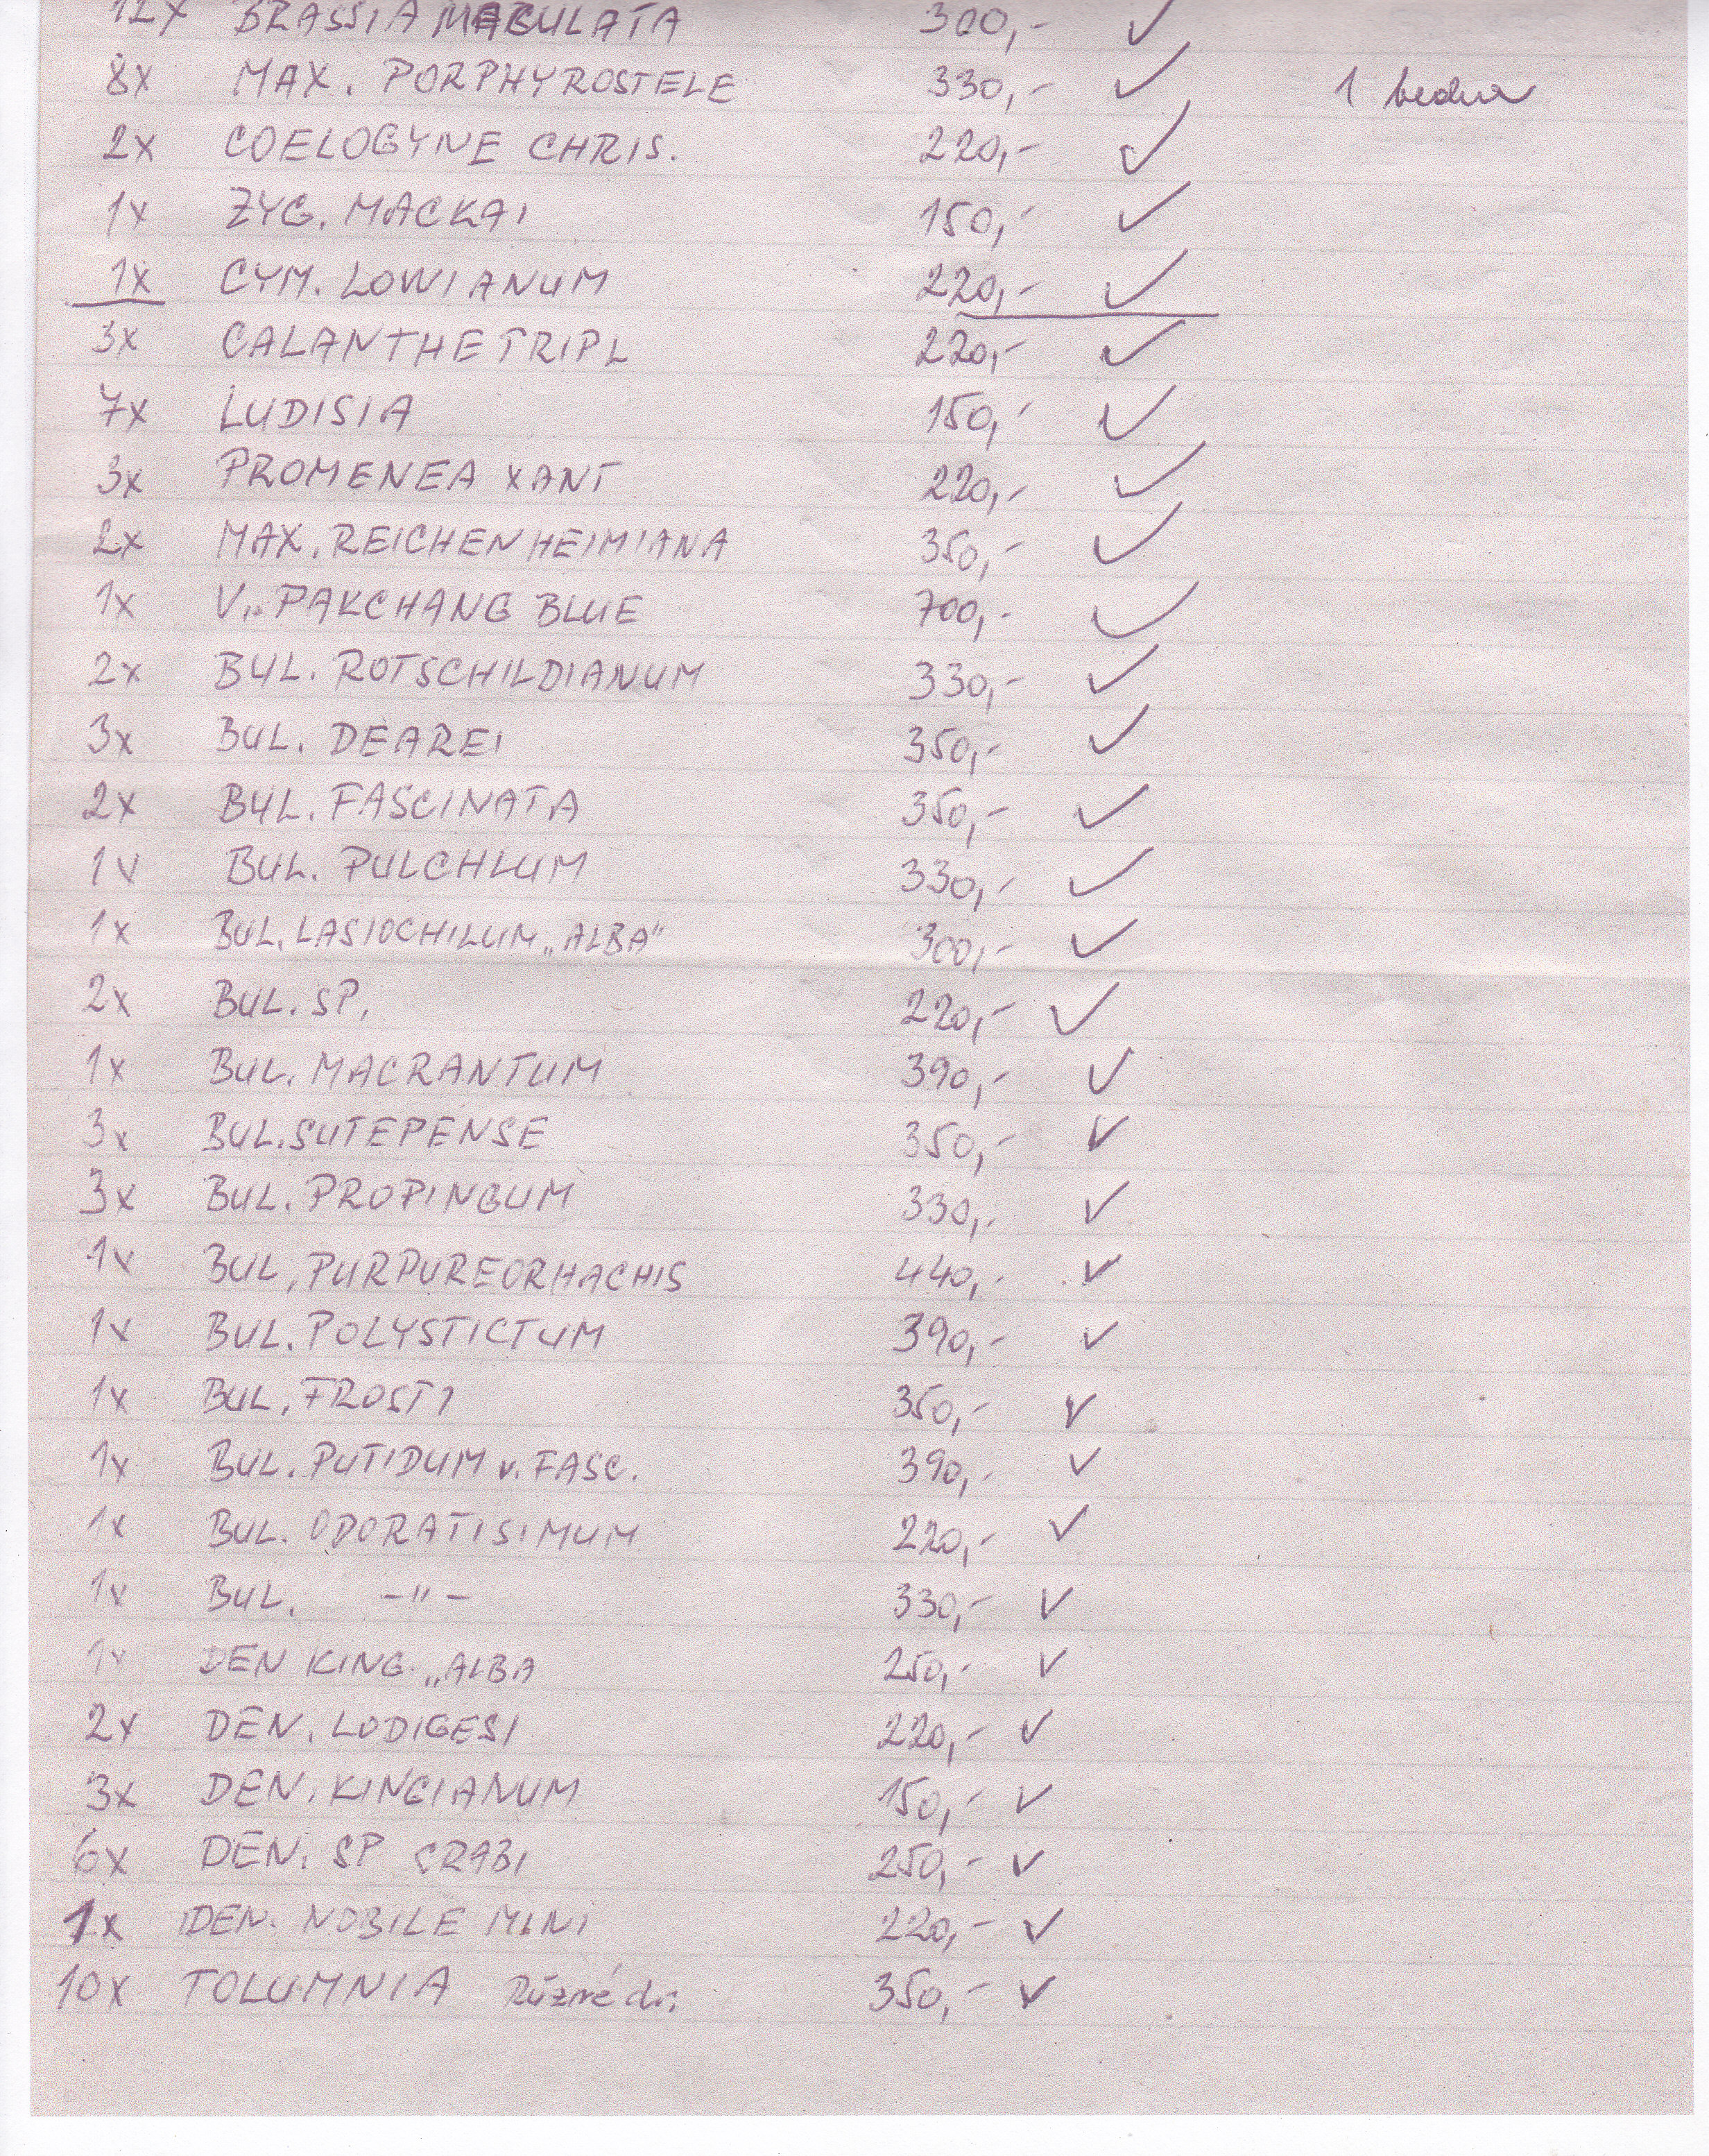 12x BRASSIA MACULATA 300,- ✓
8x MAX. PORPHYROSTELE 330,- ✓ 1 bedna
2x COELOGYNE CHRIS. 220,- ✓
1x ZYG. MACKAI 150,- ✓
1x CYM. LOWIANUM 220,- ✓
3x CALANTHE TRIPL 220,- ✓
7x LUDISIA 150,- ✓
3x PROMENEA XANT 220,- ✓
2x MAX. REICHENHEIMIANA 350,- ✓
1x V. PAKCHANG BLUE 700,- ✓
2x BUL. ROTSCHILDIANUM 330,- ✓
3x BUL. DEAREI 350,- ✓
2x BUL. FASCINATA 350,- ✓
1x BUL. PULCHLUM 330,- ✓
1x BUL. LASIOCHILUM „ALBA" 300,- ✓
2x BUL. SP. 220,- ✓
1x BUL. MACRANTUM 390,- ✓
3x BUL. SUTEPENSE 350,- ✓
3x BUL. PROPINGUM 330,- ✓
1x BUL. PURPUREORHACHIS 440,- ✓
1x BUL. POLYSTICTUM 390,- ✓
1x BUL. FROSTI 350,- ✓
1x BUL. PUTIDUM v. FASC. 390,- ✓
1x BUL. ODORATISIMUM 220,- ✓
1x BUL. -"- 330,- ✓
1x DEN KING. „ALBA 250,- ✓
2x DEN. LODIGESI 220,- ✓
3x DEN. KINGIANUM 150,- ✓
6x DEN. SP 250,- ✓
1x DEN. NOBILE MINI 220,- ✓
10x TOLUMNIA Různé dr. 350,- ✓